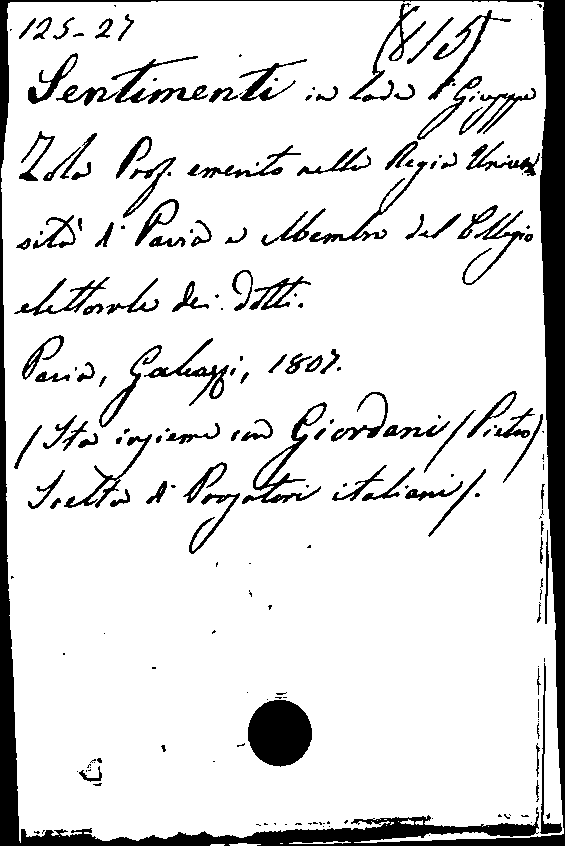 125-27 (8/5)
Sentimenti in lode di Giuseppe
Zola Prof. emerito nella Regia Univer
sità di Pavia e Membro del Collegio
elettorale dei Dotti.
Pavia, Galeazzi, 1807.
(Sta insieme con Giordani (Pietro)
Scelta di Prosatori italiani).